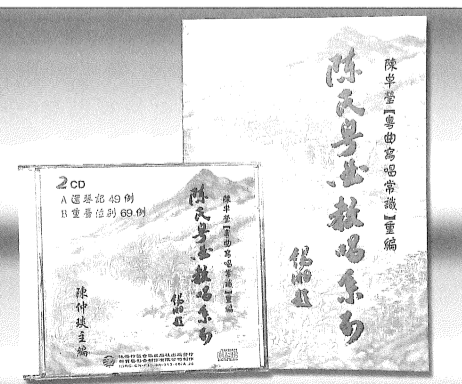 陳卓瑩【粵曲寫唱常識】重編
陈氏粤曲教唱系列
2CD
A 還琴記 49 例
B 重番位別 69 例
陳卓瑩【粵曲寫唱常識】重編
陈氏粤曲教唱系列
陳仲琰主編